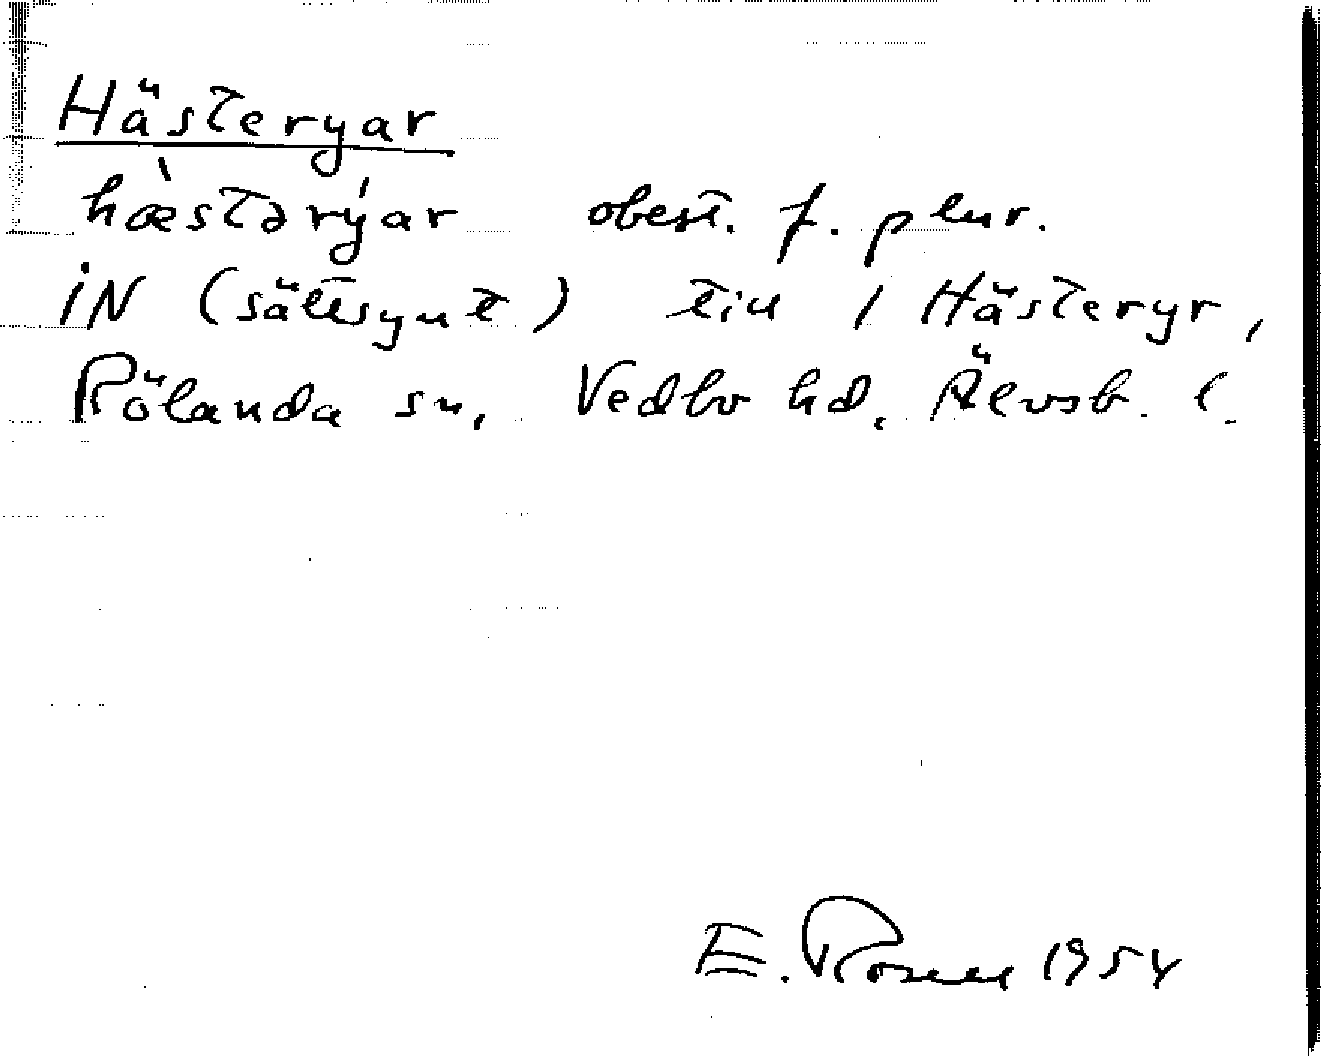 Hästeryar
hæ̀stərýar obest. f. plur.
IN (sällsynt) till 1 Hästeryr,
Rölanda sn, Vedbo hd, Älvsb. l.
E. Rosell 1954